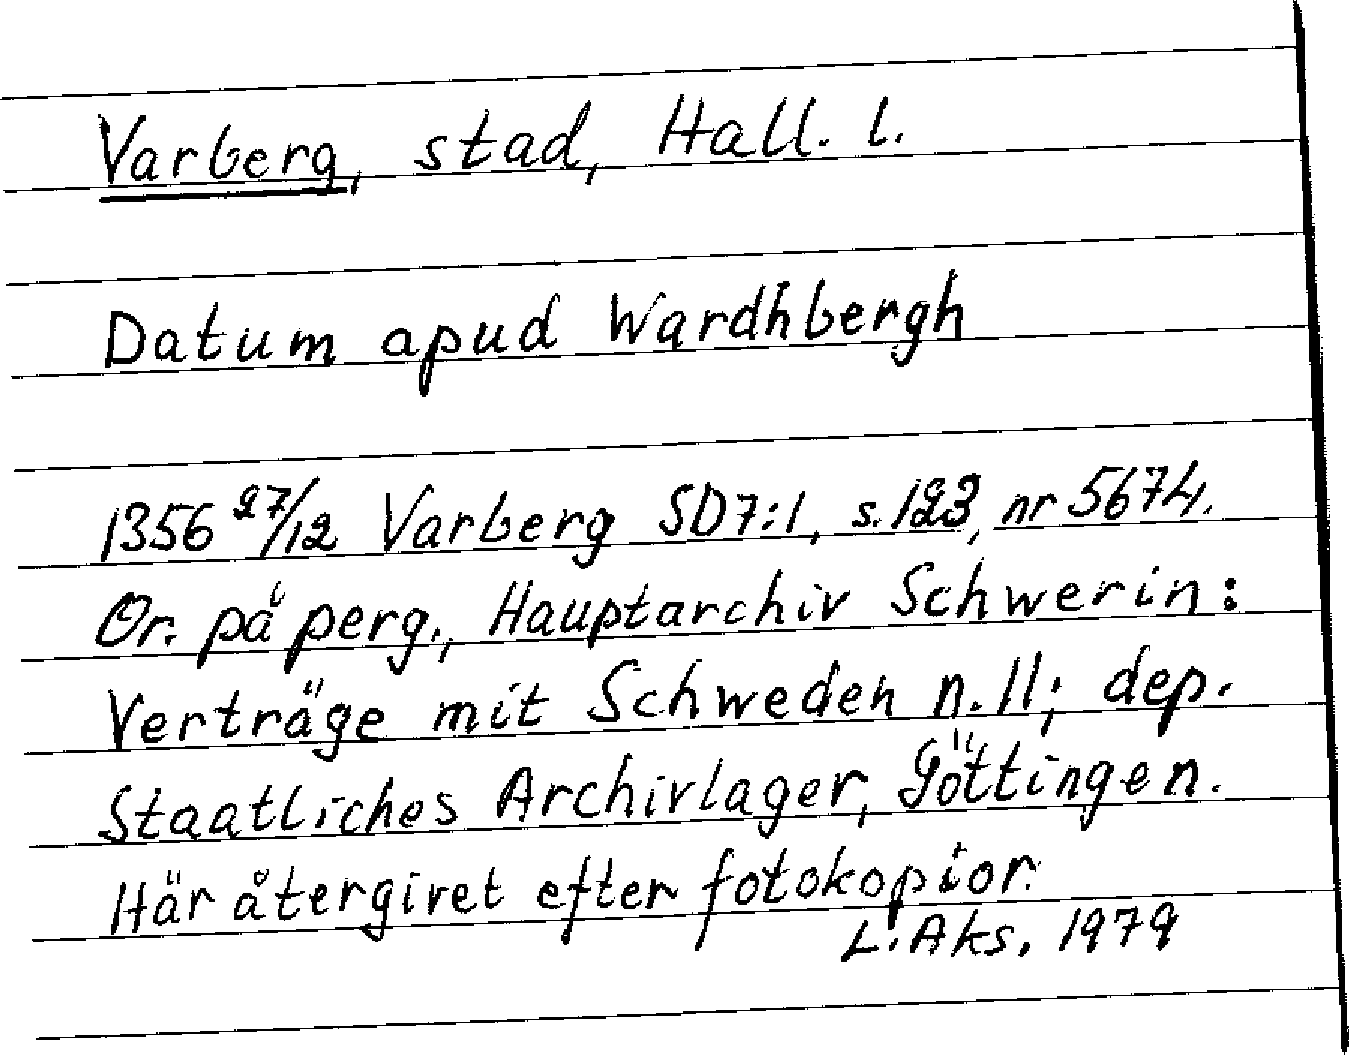 Varberg, stad, Hall. l.
Datum apud Wardhbergh
1356 27/12 Varberg SD7:1, s.123, nr 5674.
Or. på perg., Hauptarchiv Schwerin:
Verträge mit Schweden n.11; dep.
Staatliches Archivlager, Göttingen.
Här återgivet efter fotokopior.
L. Aks. 1979